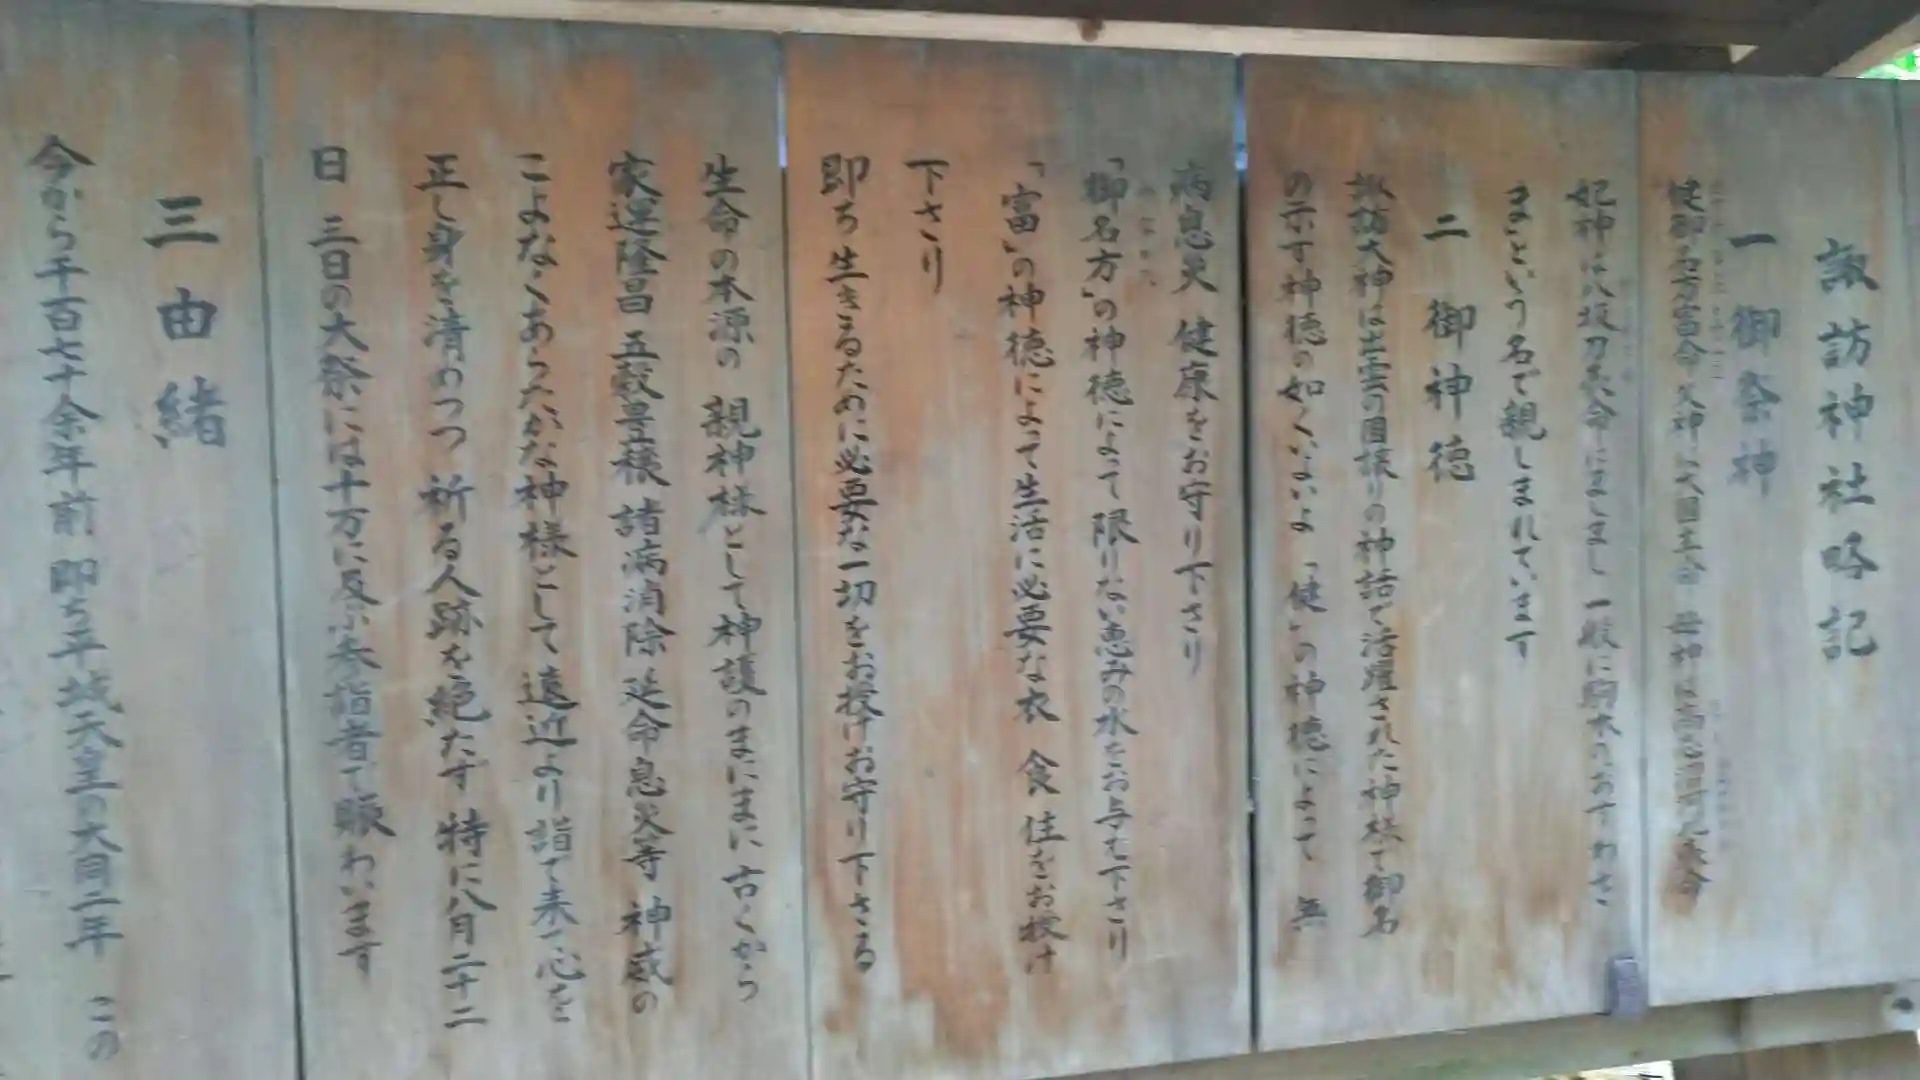 諏訪神社略記
一 御祭神
健御名方富命 父神は大国主命 母神は高志沼河比売命
妃神は八坂刀売命にましまし 一般に駒木のおすわさ
ま”という名で親しまれています
二 御神徳
諏訪大神は出雲の国譲りの神話で活躍された神様で御名
の示す神徳の如くいよいよ「健」の神徳によって 無
病息災 健康をお守り下さり
「御名方」の神徳によって限りない恵みの水をお与え下さり
「富」の神徳によって生活に必要な衣 食 住をお授け
下さり
即ち生きるために必要な一切をお授けお守り下さる
生命の本源の 親神様として神護のまにまに 古くから
家運隆昌 五穀豊穣 諸病消除 延命息災等 神威の
こよなくあらたかな神様として 遠近より詣で来て心を
正し身を清めつつ 祈る人跡を絶たず 特に八月二十二
日 三日の大祭には十万に及ぶ参詣者で賑わいます
三 由緒
今から千百七十余年前 即ち平城天皇の大同二年 この